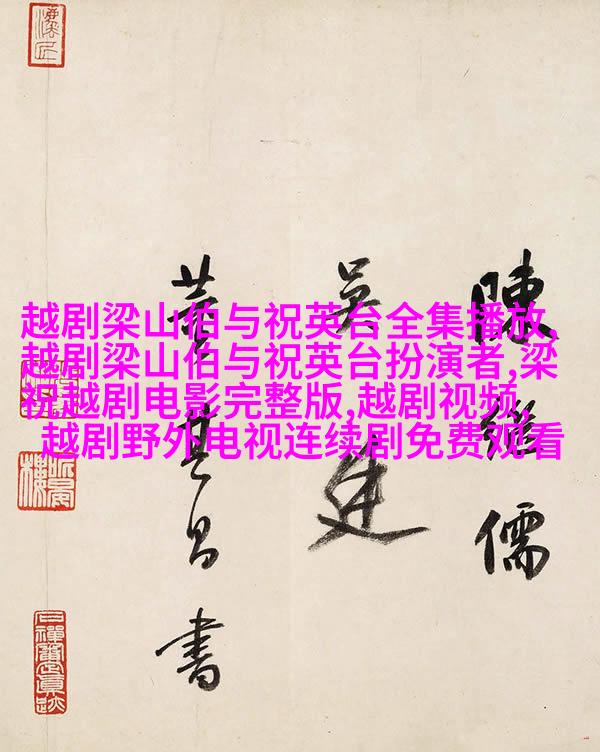 越剧梁山伯与祝英台全集播放,
越剧梁山伯与祝英台扮演者,梁
祝越剧电影完整版,越剧视频,
越剧野外电视连续剧免费观看
陳繼儒
吳廷
董其昌書